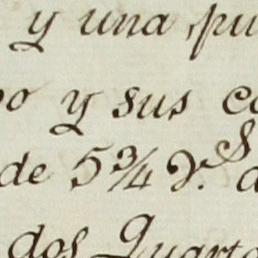 y una pu
oo y sus co
de 5¾ Vs. d
dos Quarto